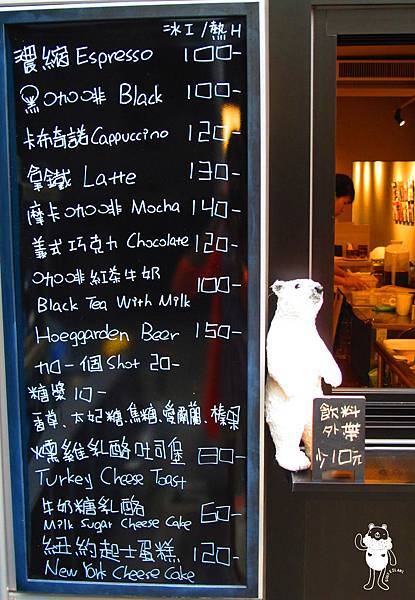 冰I/熱H
濃縮 Espresso 100-
黑咖啡 Black 100-
卡布奇諾 Cappuccino 120-
拿鐵 Latte 130-
摩卡咖啡 Mocha 140-
義式巧克力 Chocolate 120-
咖啡紅茶牛奶 100-
Black Tea With Milk
Hoeggarden Beer 150-
加一個 Shot 20-
糖漿 10-
香草、太妃糖、焦糖、愛爾蘭、榛果
燻雞乳酪吐司堡 80-
Turkey Cheese Toast
牛奶糖乳酪 60-
Milk Sugar Cheese Cake
紐約起士蛋糕 120-
New York Cheese Cake
飲料
外帶
少10元